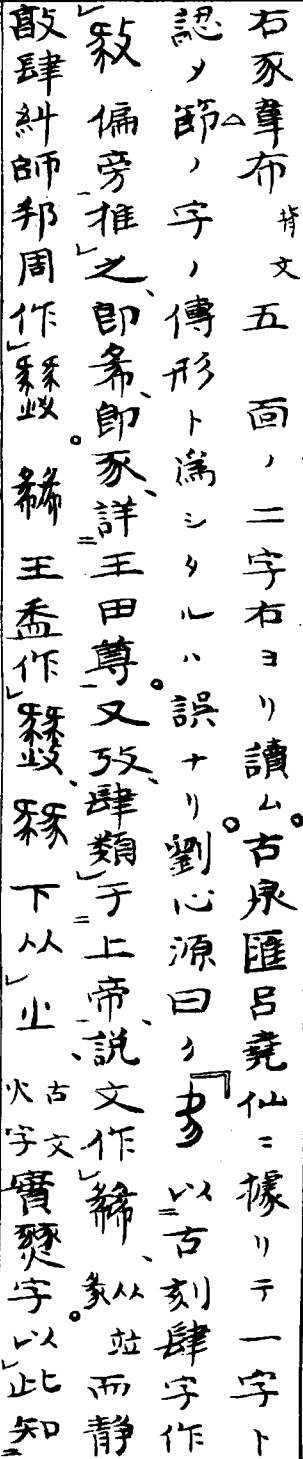 右豕韋布背文五 面ノ二字右ヨリ讀ム。古泉匯呂堯仙ニ據リテ一字ト
認メ節ノ字ノ傳形ト為シタルハ誤ナリ劉心源曰ク「 以古刻肆字作
 偏旁推之、即㣇、即豕、詳王田蓴。又攷、肆類于上帝、説文作 、从 竝而靜
敲肆糾師邦周作 。 王盉作 、 下从止、古文火字實燹字。以此知